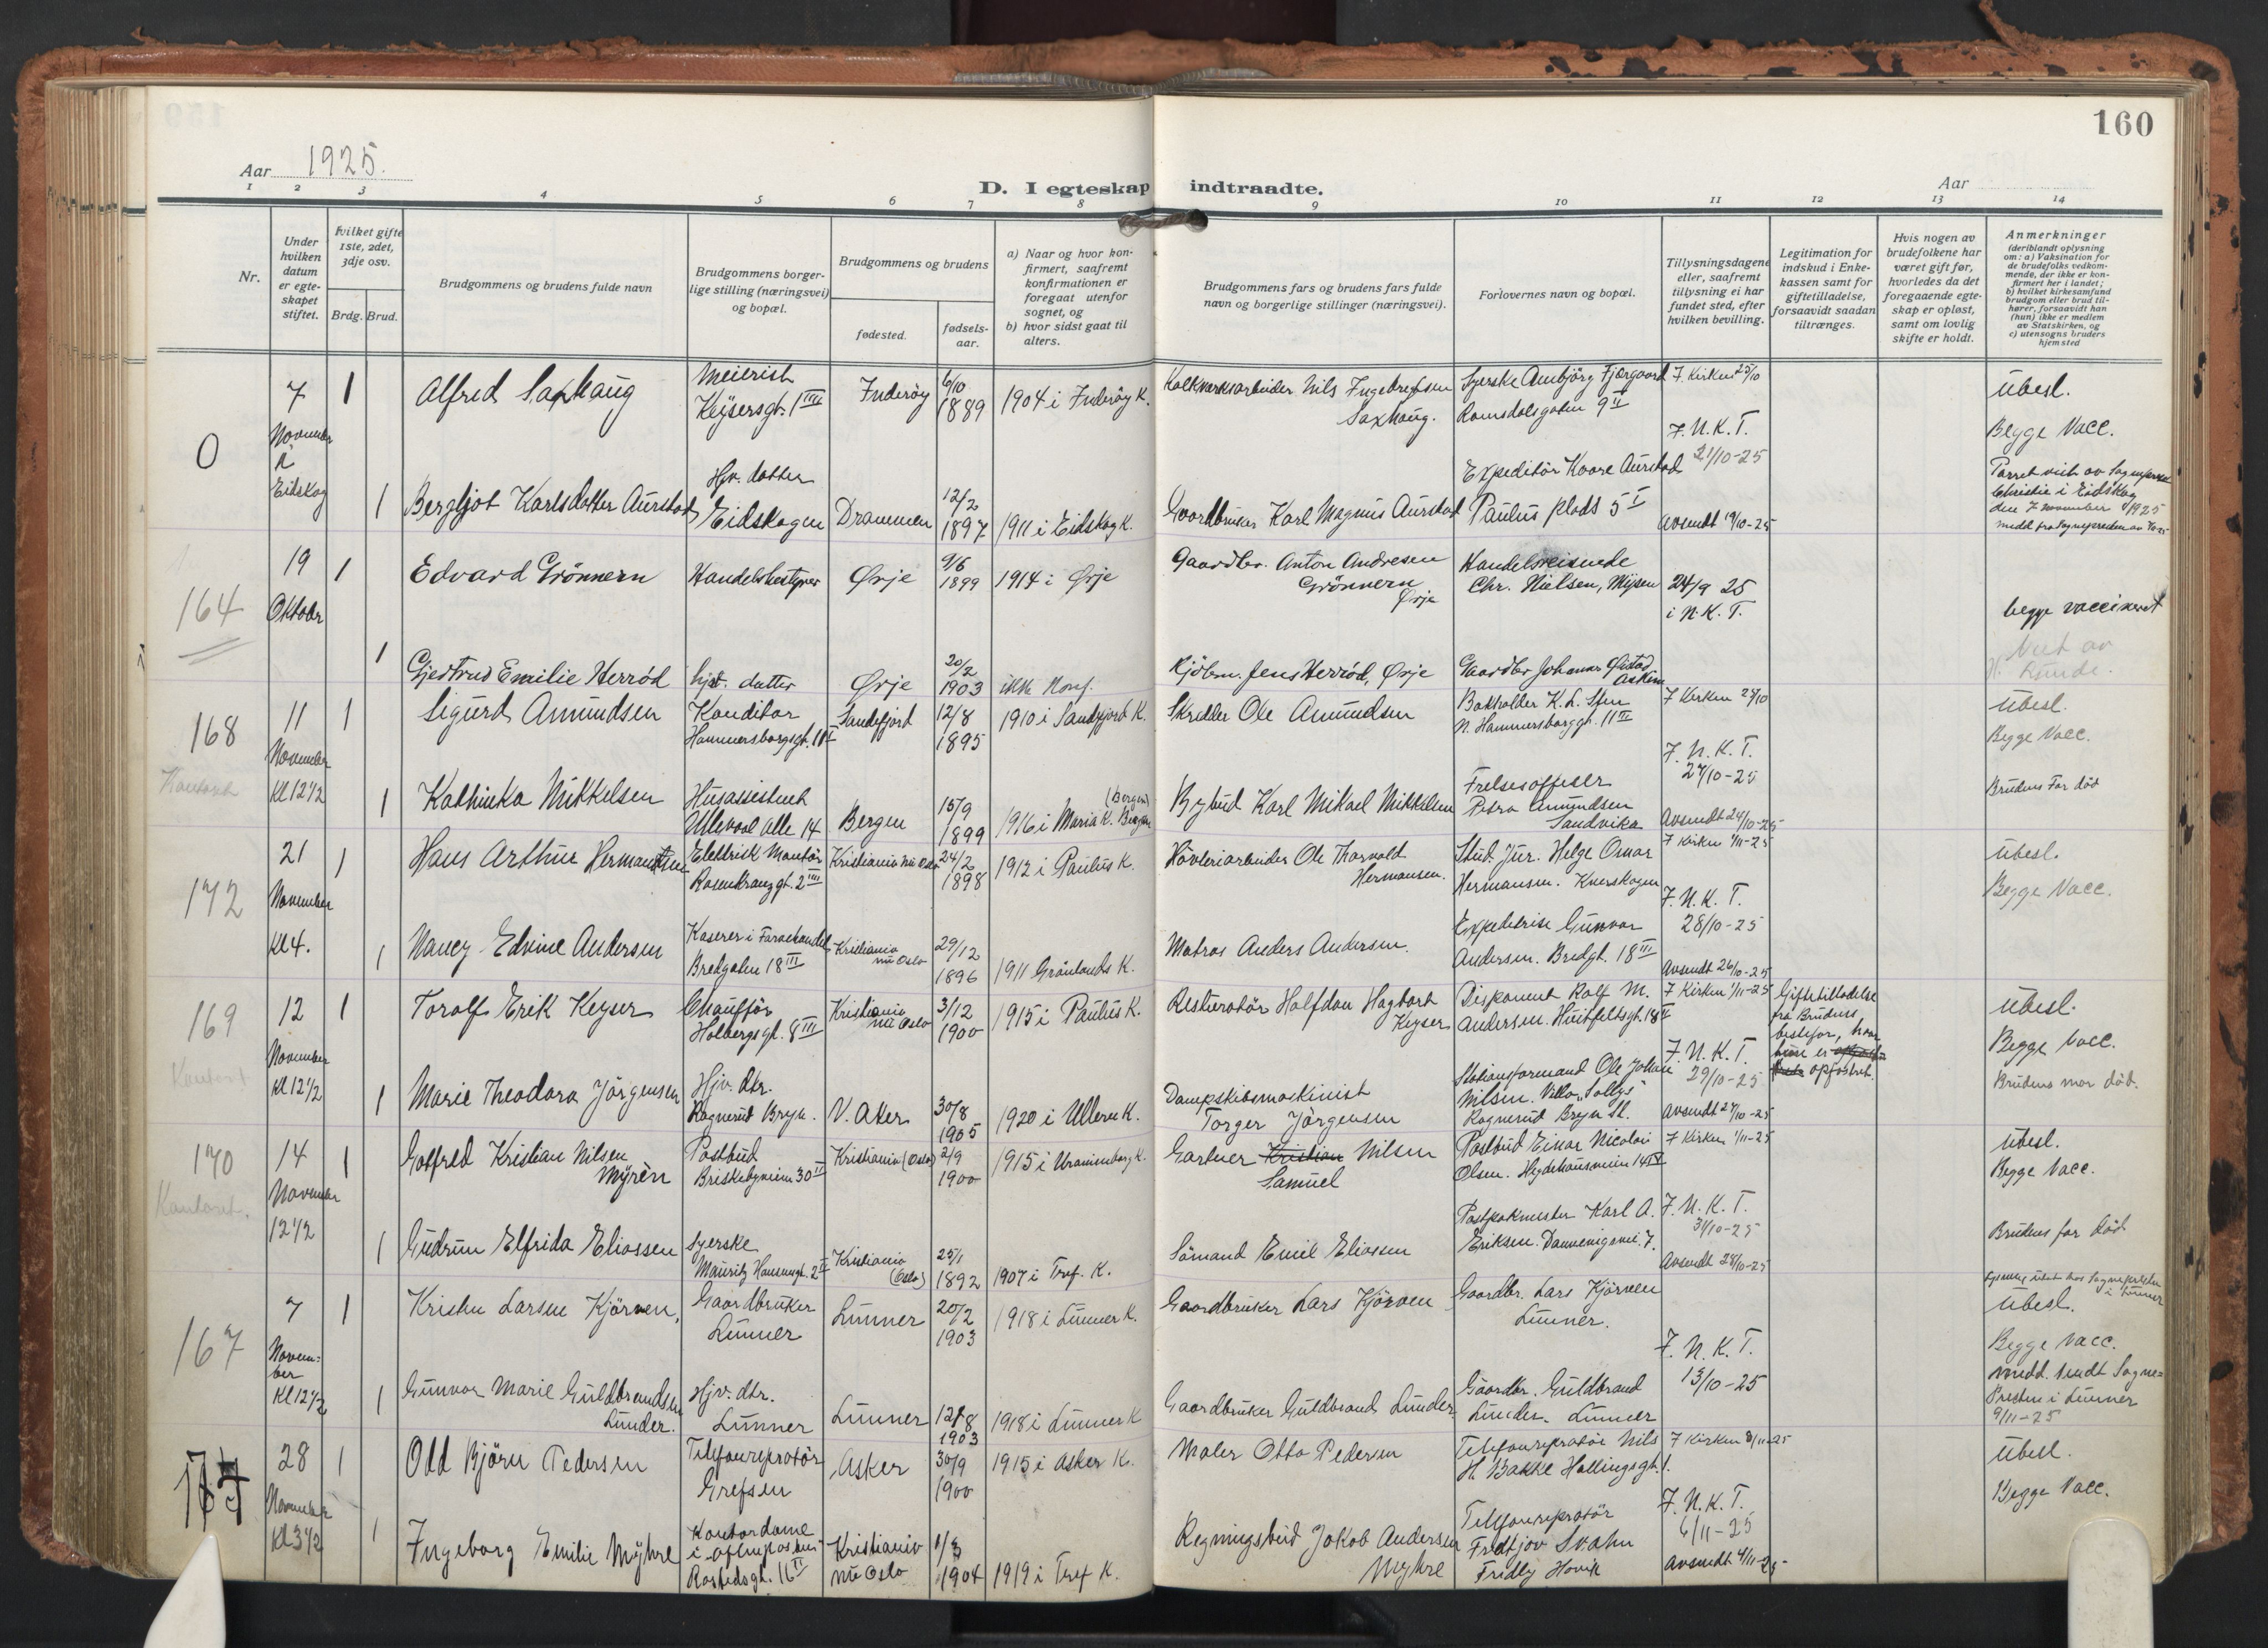 160
Aar 1925.
D. I egteskap indtraadte.
Aar
1 2 3 4 5 6 7 8 9 10 11 12 13 14
Nr.
Under hvilken datum er egteskapet stiftet.
Hvilket gifte 1ste, 2det, 3dje osv.
Brdg. Brud.
Brudgommens og brudens fulde navn
Brudgommens borgerlige stilling (næringsvei) og bopæl.
Brudgommens og brudens
fødested.
fødselsaar.
a) Naar og hvor konfirmert, saafremt konfirmationen er foregaat utenfor sognet, og
b) hvor sidst gaat til alters.
Brudgommens fars og brudens fars fulde navn og borgerlige stillinger (næringsvei).
Forlovernes navn og bopæl.
Tillysningsdagene eller, saafremt tillysning ei har fundet sted, efter hvilken bevilling.
Legitimation for indskud i Enkekassen samt for giftetilladelse, forsaavidt saadan tiltrænges.
Hvis nogen av brudefolkene har været gift før, hvorledes da det foregaaende egteskap er opløst, samt om lovlig skifte er holdt.
Anmerkninger
(deriblandt oplysning om: a) Vaksination for de brudefolks vedkommende, der ikke er konfirmert her i landet; b) hvilket kirkesamfund brudgom eller brud tilhører, forsaavidt han (hun) ikke er medlem av Statskirken, og c) utensogns bruders hjemsted
0
7 November i Eidskog
1 Alfred Saxhaug
Meierist Keysersgt. 1 IIII
Inderøy 6/10 1889
1904 i Inderøy K.
Kalkverksarbeider Nils Ingebregtsen Saxhaug.
Syerske Ambjörg Fjærgaard Ramsdalsgaten 9 II
I. Kirken 25/10
I. N. K. T. 21/10-25
Ubesl.
Begge Vacc.
1 Bergljot Karlsdatter Aurstad
Hjv. datter Eidskogen
Drammen 12/2 1897
1911 i Eidskog K.
Gaardbruker Karl Magnus Aurstad
Expeditör Kaare Aurstad Paulus plads 5 I
Avsendt 19/10-25
Parret viet av Sogneprest Christie i Eidskog den 7 november 1925
164
19 Oktober
1 Edvard Grönnern
Handelsbestyrer
Ørje 9/6 1899
1914 i Ørje
Gaardbr. Anton Andresen Grönnern Ørje
Handelsreisende Chr. Nielsen, Mysen
24/9 25 i N. K. T.
begge vaccineret
1 Gjertrud Emilie Herrød
hjv. datter
Ørje 20/2 1903
ikke Konf.
Kjöbm. Jens Herrød, Ørje
Gaardbr Johannes Øistad Askim
Viet av
168
Kontoret
11 November Kl 12 1/2
1 Sigurd Amundsen
Konditor Hammersborggt. 11 I
Sandefjord 12/8 1895
1910 i Sandefjord K.
Skredder Ole Amundsen
Bokholder K. L. Sten N. Hammersborggt. 11 III
I Kirken 25/10
I. N. K. T. 27/10-25
Ubesl.
Begge Vacc.
1 Kathinka Mikkelsen
Husassistent Ullevaal Alle 14
Bergen 15/9 1899
1916 i Maria K. Bergen (Bergen)
Bybud Karl Mikael Mikkelsen
Frelsesoffiser Petra Amundsen Sandvika
Avsendt 24/10-25
Brudens Far död
172
21 November Kl 4.
1 Hans Arthur Hermansen
Elektrisk Montör Rosenkranzgt. 2 IIII
Kristiania nu Oslo 24/2 1898
1912 i Paulus K.
Hövleriarbeider Ole Thorvald Hermansen.
Stud. Jur. Helge Omar Hermansen. Kverskogen
I Kirken 1/11-25
I. N. K. T. 28/10-25
Ubesl.
Begge Vacc.
1 Nancy Edvine Andersen
Kaserer i Farvehandel Bredgaten 18 III
Kristiania nu Oslo 29/12 1896
1911 Grönlands K.
Matros Anders Andersen.
Expeditrise Gunvor Andersen. Bredgt. 18 III
Avsendt 26/10-25
169
Kontoret
12 November Kl 12 1/2
1 Toralf Erik Keyser
Chaufför Holbergsgt. 8 III
Kristiania nu Oslo 3/12 1900
1915 i Paulus K.
Restoratör Halfdan Hagbart Keyser
Disponent Rolf M. Andersen. Huitfeltsgt. 18 II
I Kirken 1/11-25
I. N. K. T. 29/10-25
Giftetilladelse fra Brudens bestefar, hvor hun er opfostret.
Ubesl.
Begge Vacc.
1 Marie Theodora Jörgensen
Hjv. dtr. Rognerud Bryn.
V. Aker 30/8 1905
1920 i Ullern K.
Dampskibsmaskinist Torger Jörgensen
Stationsformand Ole Johan Nilsen. Villa "Sollys" Rognerud Bryn St.
Avsendt 27/10-25
Brudens mor död.
170
Kontoret.
14 November 12 1/2
1 Gotfred Kristian Nilsen Myrèn
Postbud Briskebyveien 30 II
Kristiania (Oslo) 2/9 1900
1915 i Uranienborg K.
Gartner Kristian Nilsen Samuel
Postbud Einar Nicolai Olsen. Hegdehausveien 14 IV
I Kirken 1/11-25
I. N. K. T. 31/10-25
Ubesl.
Begge Vacc.
1 Gudrun Elfrida Eliassen
Syerske Mauritz Hansensgt. 2 II
Kristiania (Oslo) 25/1 1892
1907 i Tref. K.
Sömand Emil Eliassen
Postpakmester Karl A. Eriksen. Dannevigsvei. 7.
Avsendt 28/10-25
Brudens far död
167
7 November Kl 12 1/2
1 Kristen Larsen Kjörven,
Gaardbruker Lunner
Lunner 20/2 1903
1918 i Lunner K.
Gaardbruker Lars Kjörven
Gaardbr. Lars Kjörven Lunner.
I. N. K. T. 13/10-25
Ubesl.
Begge Vacc.
1 Gunvor Marie Guldbrandsen Lunder.
Hjv. dtr. Lunner
Lunner 12/8 1903
1918 i Lunner K
Gaardbruker Guldbrand Lunder
Gaardbr. Guldbrand Lunder. Lunner
Medd. sendt Sognepresten i Lunner 9/11-25
28 November Kl 3 1/2
1 Odd Björn Pedersen
Telefonreparatör Grefsen
Asker 30/9 1900
1915 i Asker K.
Maler Otto Pedersen
Telefonreparatör Nils H. Bakke Hallingsgt. 1.
I Kirken 8/11-25
I. N. K. T. 6/11-25
Ubesl.
Begge Vacc.
1 Ingeborg Emilie Myhre
Kontordame i "Aftenposten" Rostedsgt. 16 II
Kristiania nu Oslo 1/3 1904
1919 i Tref K.
Regningsbud Jakob Andersen Myhre
Telefonreparatör Fredtjov Svahn Fridly Hovik
Avsendt 4/11-25